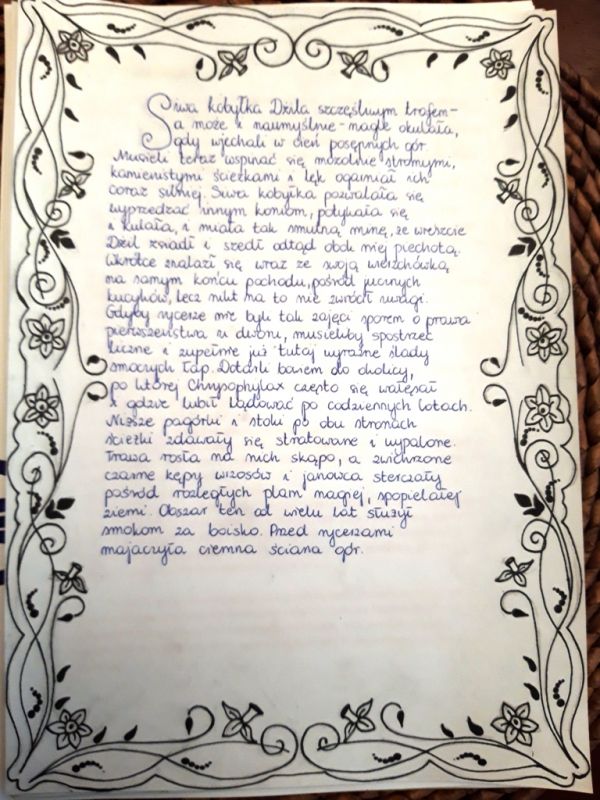 Siwa kobyłka Dżila szczęśliwym trafem-
a może i naumyślnie - nagle okulała,
gdy wjechali w cień posępnych gór.
Musieli teraz wspinać się mozolnie stromymi,
kamienistymi ścieżkami i lęk ogarniał ich
coraz silniej. Siwa kobyłka pozwalała się
wyprzedzać innym koniom, potykała się
i kulała, i miała tak smutną minę, że wreszcie
Dżil zsiadł i szedł odtąd obok niej piechotą.
Wkrótce znalazł się wraz ze swoją wierzchówką
na samym końcu pochodu, pośród jucznych
kucyków, lecz nikt na to nie zwrócił uwagi.
Gdyby rycerze nie byli tak zajęci sporem o prawa
pierwszeństwa u dworu, musieliby spostrzec
liczne i zupełnie już tutaj wyraźne ślady
smoczych łap. Dotarli bowiem do okolicy,
po której Chrysophylax często się wałęsał
i gdzie lubił lądować po codziennych lotach.
Niższe pagórki i stoki po obu stronach
ścieżki zdawały się stratowane i wypalone.
Trawa rosła na nich skąpo, a zwichrzone
czarne kępy wrzosów i janowca sterczały
pośród rozległych plam nagiej, spopielałej
ziemi. Obszar ten od wielu lat służył
smokom za boisko. Przed rycerzami
majaczyła ciemna ściana gór.